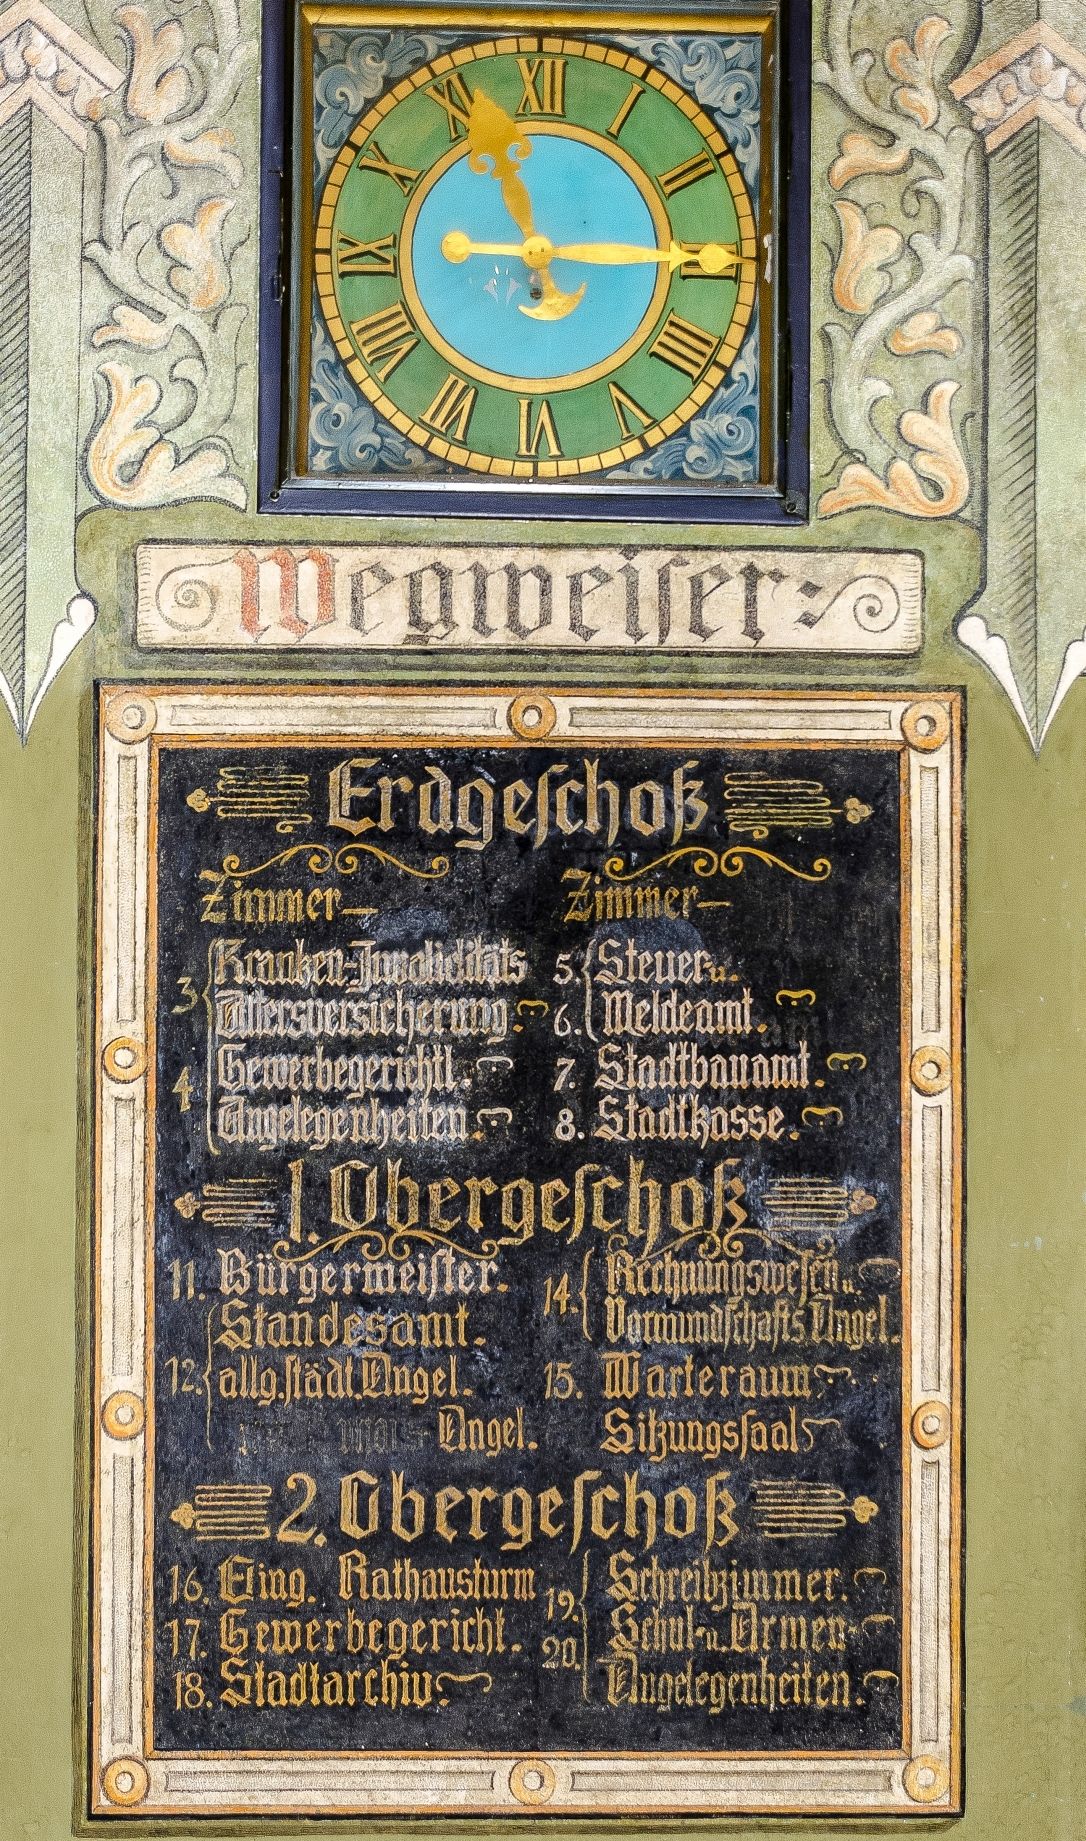 XII
I
II
III
IIII
V
VI
VII
VIII
IX
X
XI
Wegweiser
Erdgeschoß
Zimmer
3 Kranken-Invaliditäts
Altersversicherung.
4. Gewerbegerichtl.
Angelegenheiten.
Zimmer
5. Steuer u.
6. Meldeamt.
7. Stadtbauamt.
8. Stadtkasse.
1. Obergeschoß
11. Bürgermeister.
Standesamt.
12. allg. städt. Angel.
Angel.
14. Rechnungswesen u.
Vormundschafts Angel.
15. Warteraum
Sitzungssaal
2. Obergeschoß
16. Eing. Rathausturm
17. Gewerbegericht.
18. Stadtarchiv.
19. Schreibzimmer.
20. Schul- u. Armen-
Angelegenheiten.